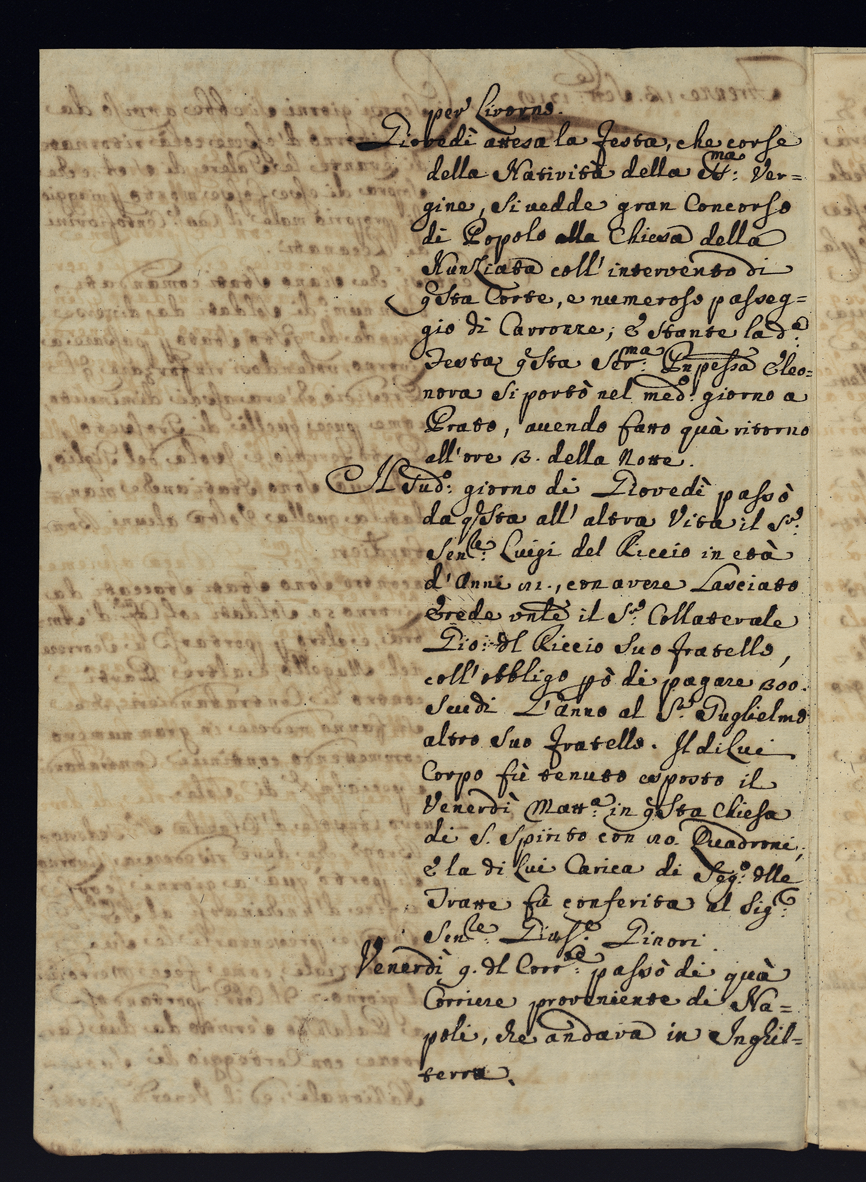 per Livorno.
Giovedì attesa la Festa, che corse
della Natività della SS:ma Ver=
gine, si vedde gran Concorso
di Popolo alla Chiesa della
Nunziata coll' intervento di
qsta Corte, e numeroso passeg=
gio di Carrozze; e stante la d.a
Festa qsta Ser:ma Pnpessa Eleo=
nora si portò nel med.o giorno a
Prato, avendo fatto quà ritorno
all'ore 3. della Notte.
Il Sud.o giorno di Giovedì passò
da qsta all' altra Vita il Sr.
Sen:re Luigi del Riccio in età
d'Anni , con avere Lasciato
Erede unle il Sr. Collaterale
Gio: dl Riccio suo fratello,
coll'obbligo pò di pagare 300.
Scudi L'anno al Sr. Guglielmo
altro suo fratello. Il di Lui
Corpo fù tenuto esposto il
Venerdì Matt.a in qsta Chiesa
di S. Spirito con 20. Quadroni,
e la di Lui Carica di Seg.o dlle
Tratte fù conferita al Sig.r
Sen:re Gius.e Ginori.
Venerdì 9. dl Corr:te passò di quà
Corriere proveniente di Na=
poli, che andava in Inghil=
terra.